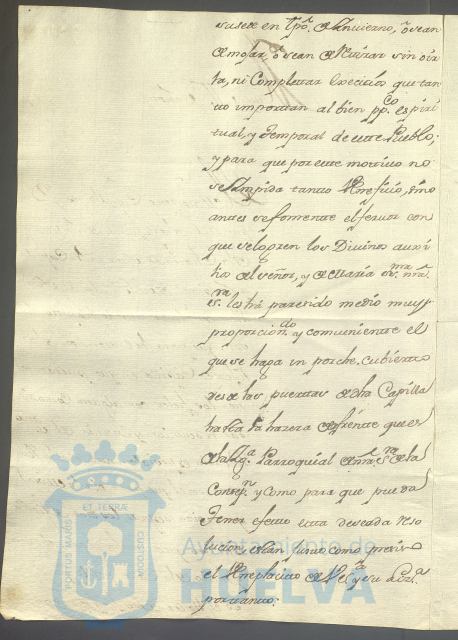 susede en tpo. de Invierno, ô sean
de mojar, ô sean de Retirar sin oir
la, ni Completar Exercicios que tan
to importan al bien ppco. espiri
tual, y temporal de este Pueblo;
y para que por este motivo no
se Impida tanto Beneficio, sino
antes se fomente el fervor con
que se logren los Divinos auxi
lios del señor, y de Maria ssma. nra.
sra. les há paresido medio muy
proporciondo. y combeniente el
que se haga un porche Cubierto
desde las puertas de dha Capilla
hasta la hazera de frente que es
de la Yga. Parroquial de nra. Sra. de la
Concepn. y Como para que pueda
tener efecto esta deseada reso
lucion
el Beneplacito de
por tanto:
PORTUS MARIS ET TERRÆ CUSTODIA
Ayuntamiento de
HUELVA